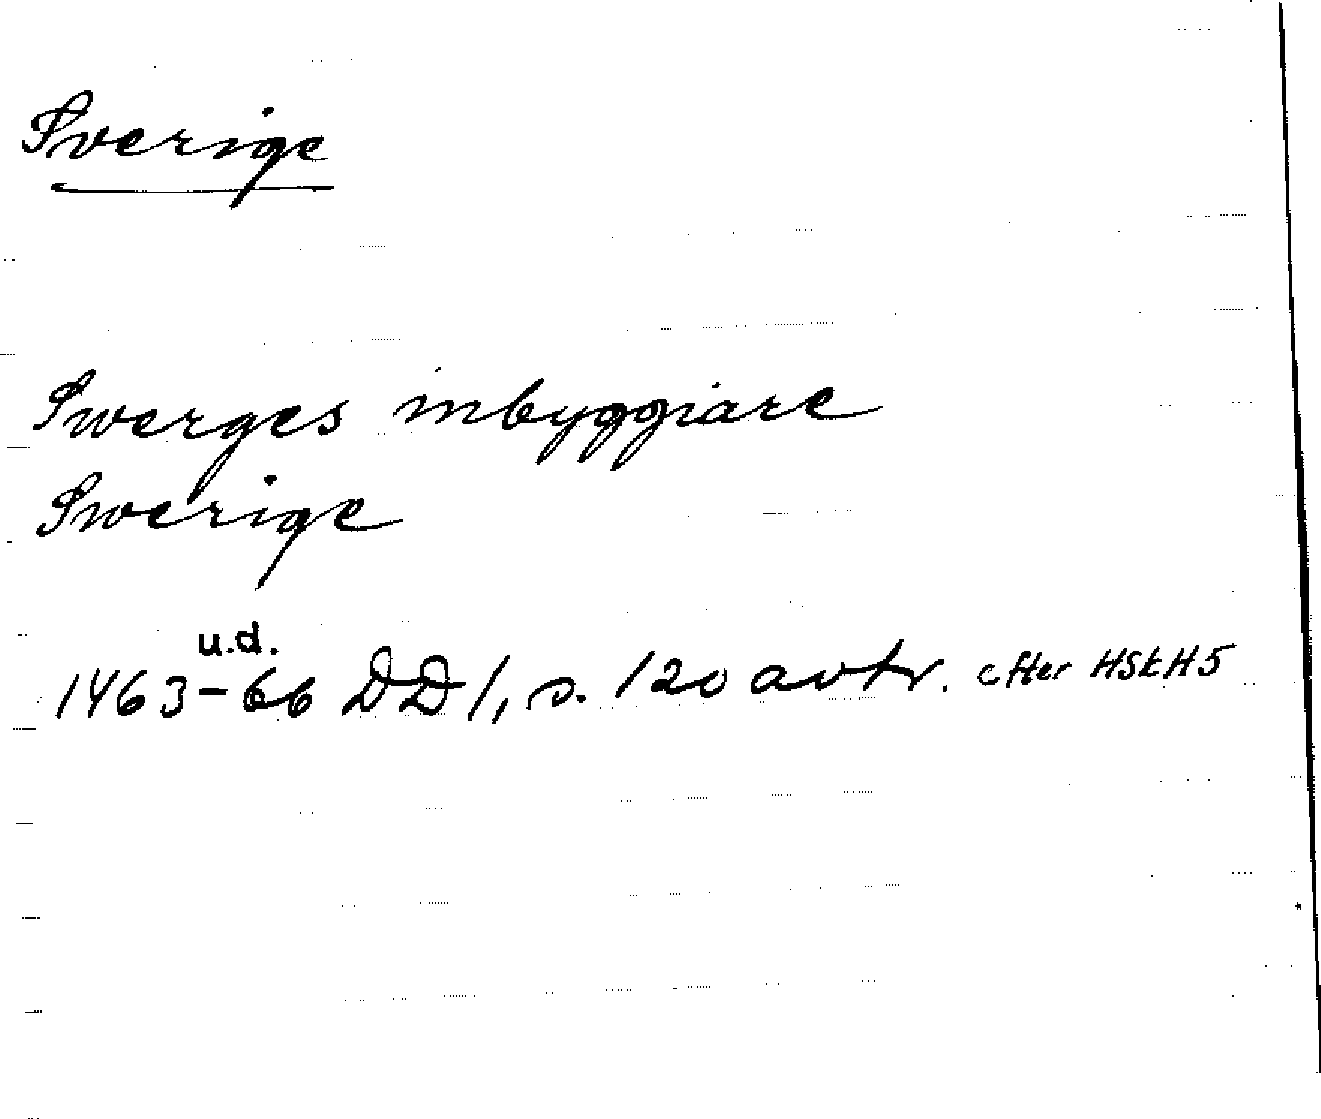 Sverige
Swerges inbyggiare
Swerige
u.d.
1463-66 DD 1, s. 120 avtr. efter HSkH5